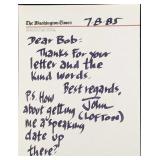 The Washington Times
7.8.85
Dear Bob:
Thanks for your
letter and the
kind words.
Best regards,
John
(LOFTON)
P.S. How
about getting
me a speaking
date up
there?